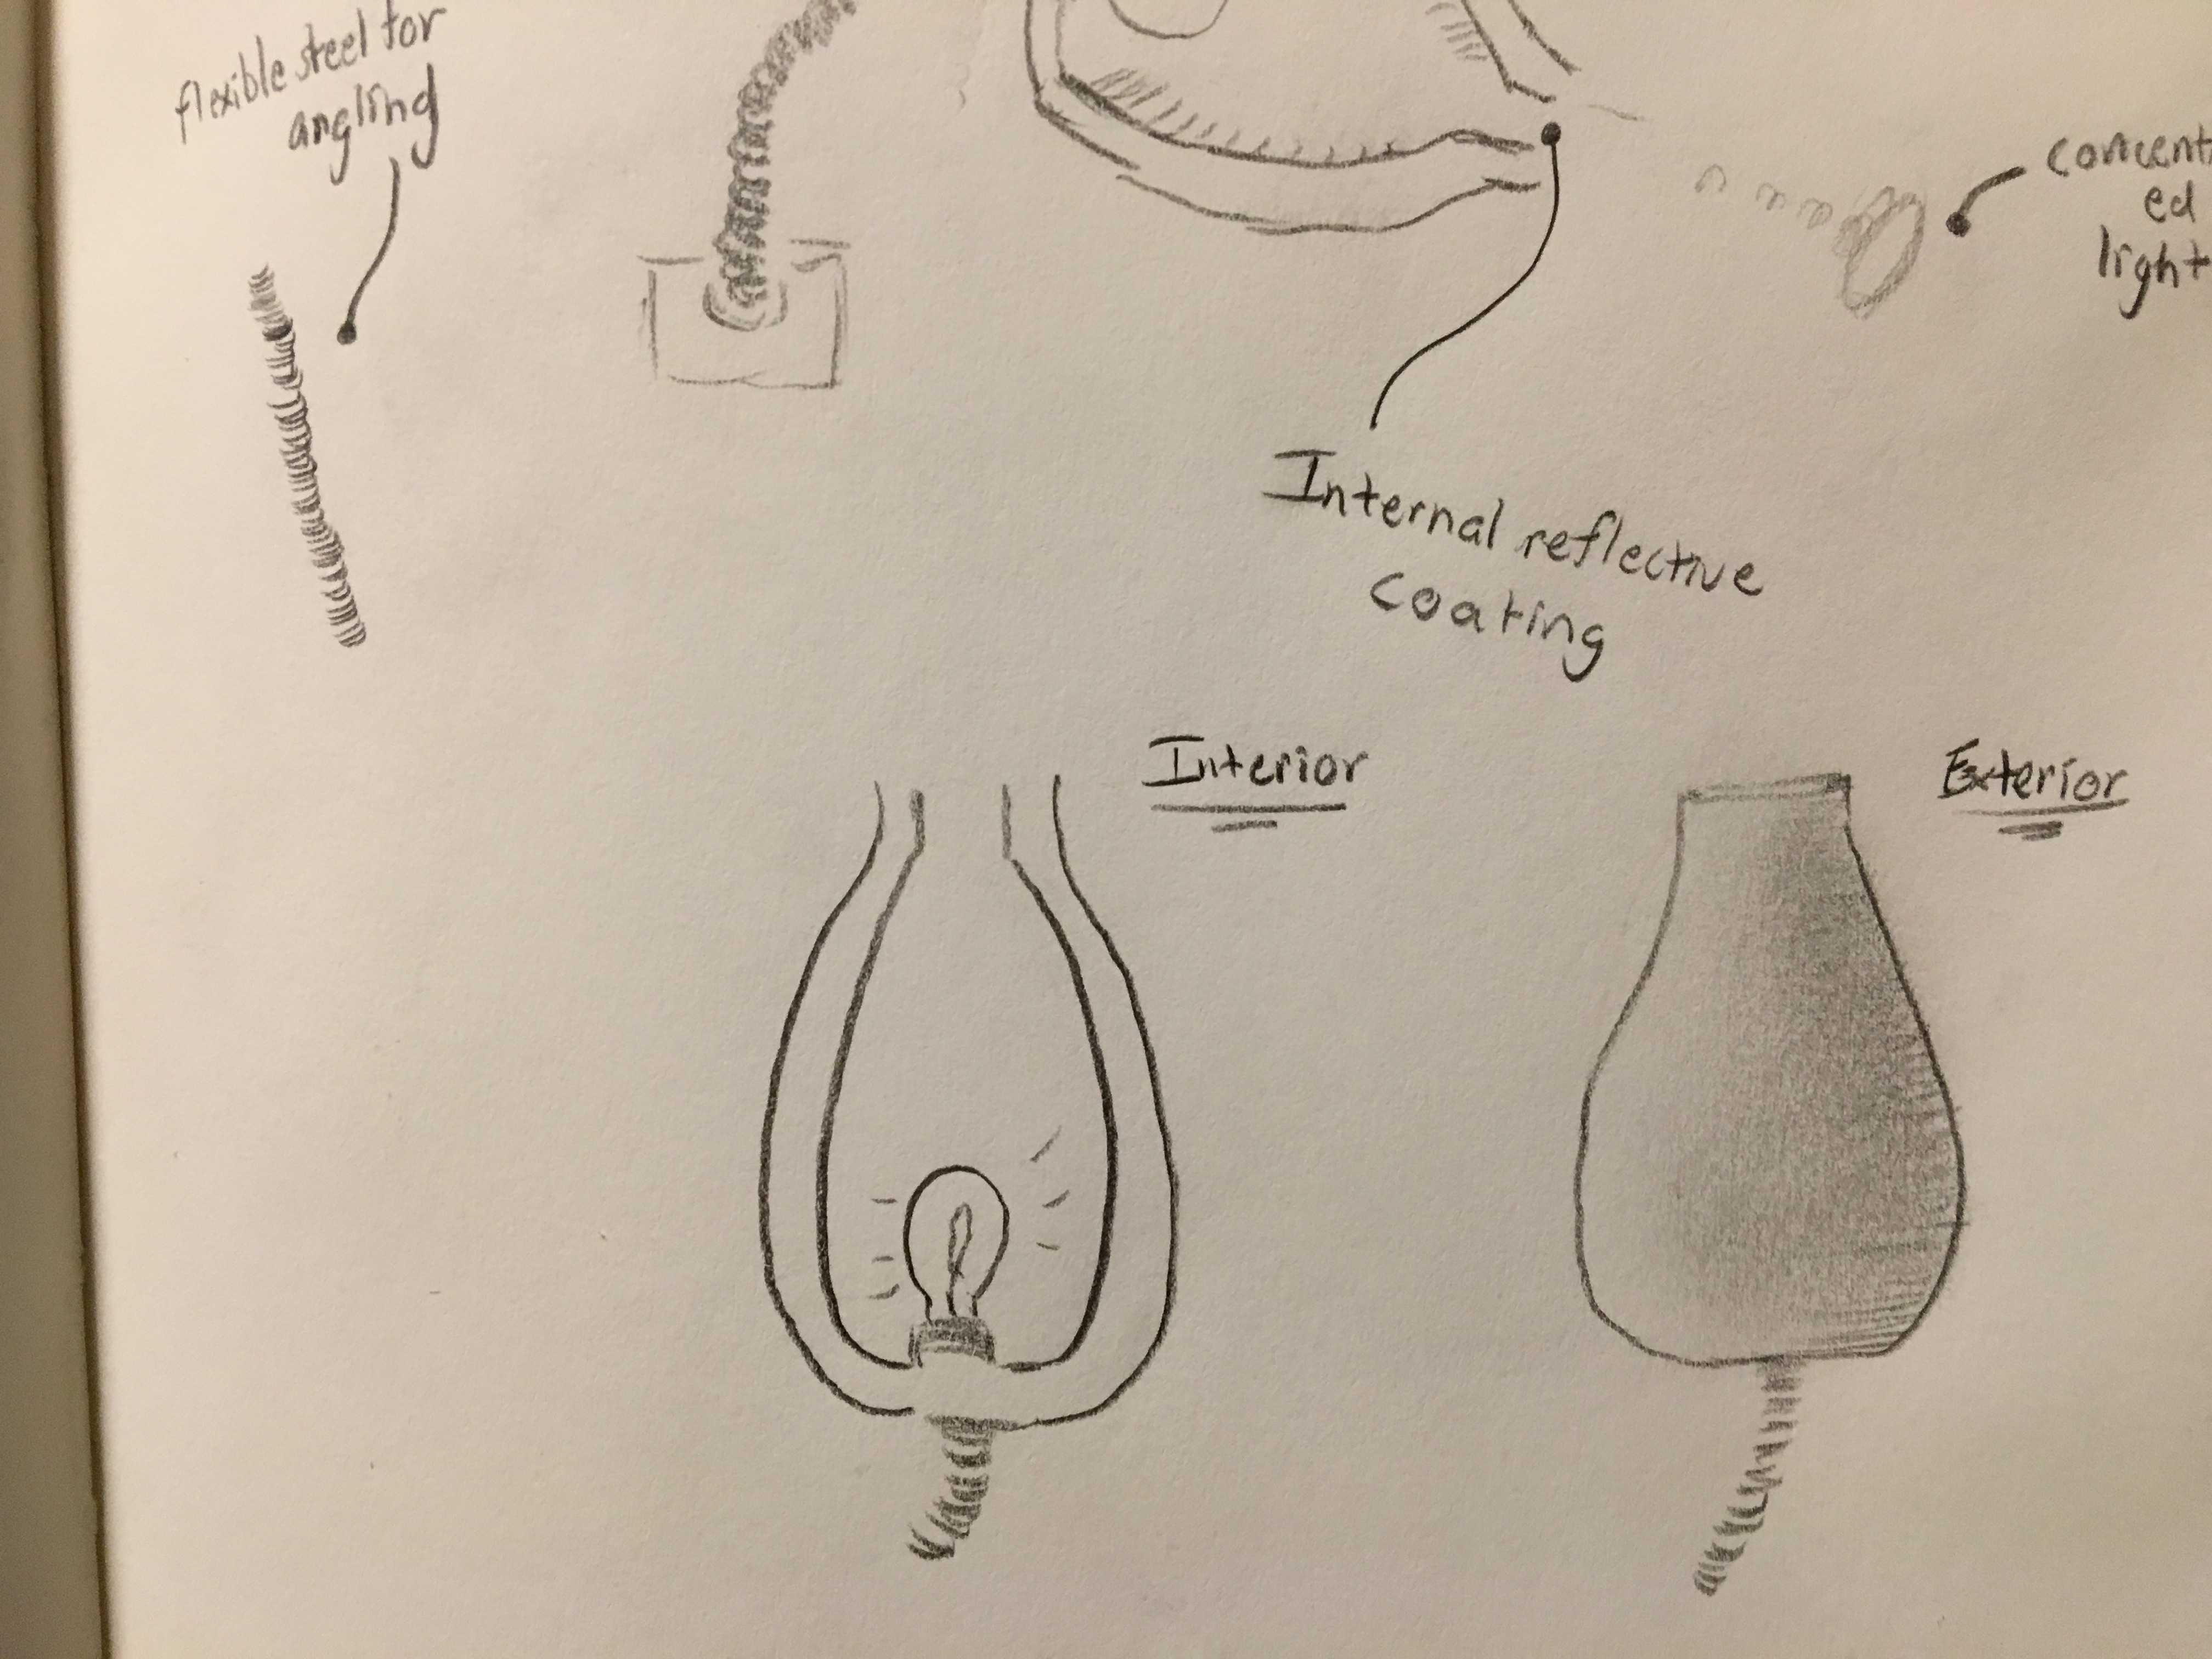 flexible steel for
angling
concent
ed
light
Internal reflective
coating
Interior
Exterior